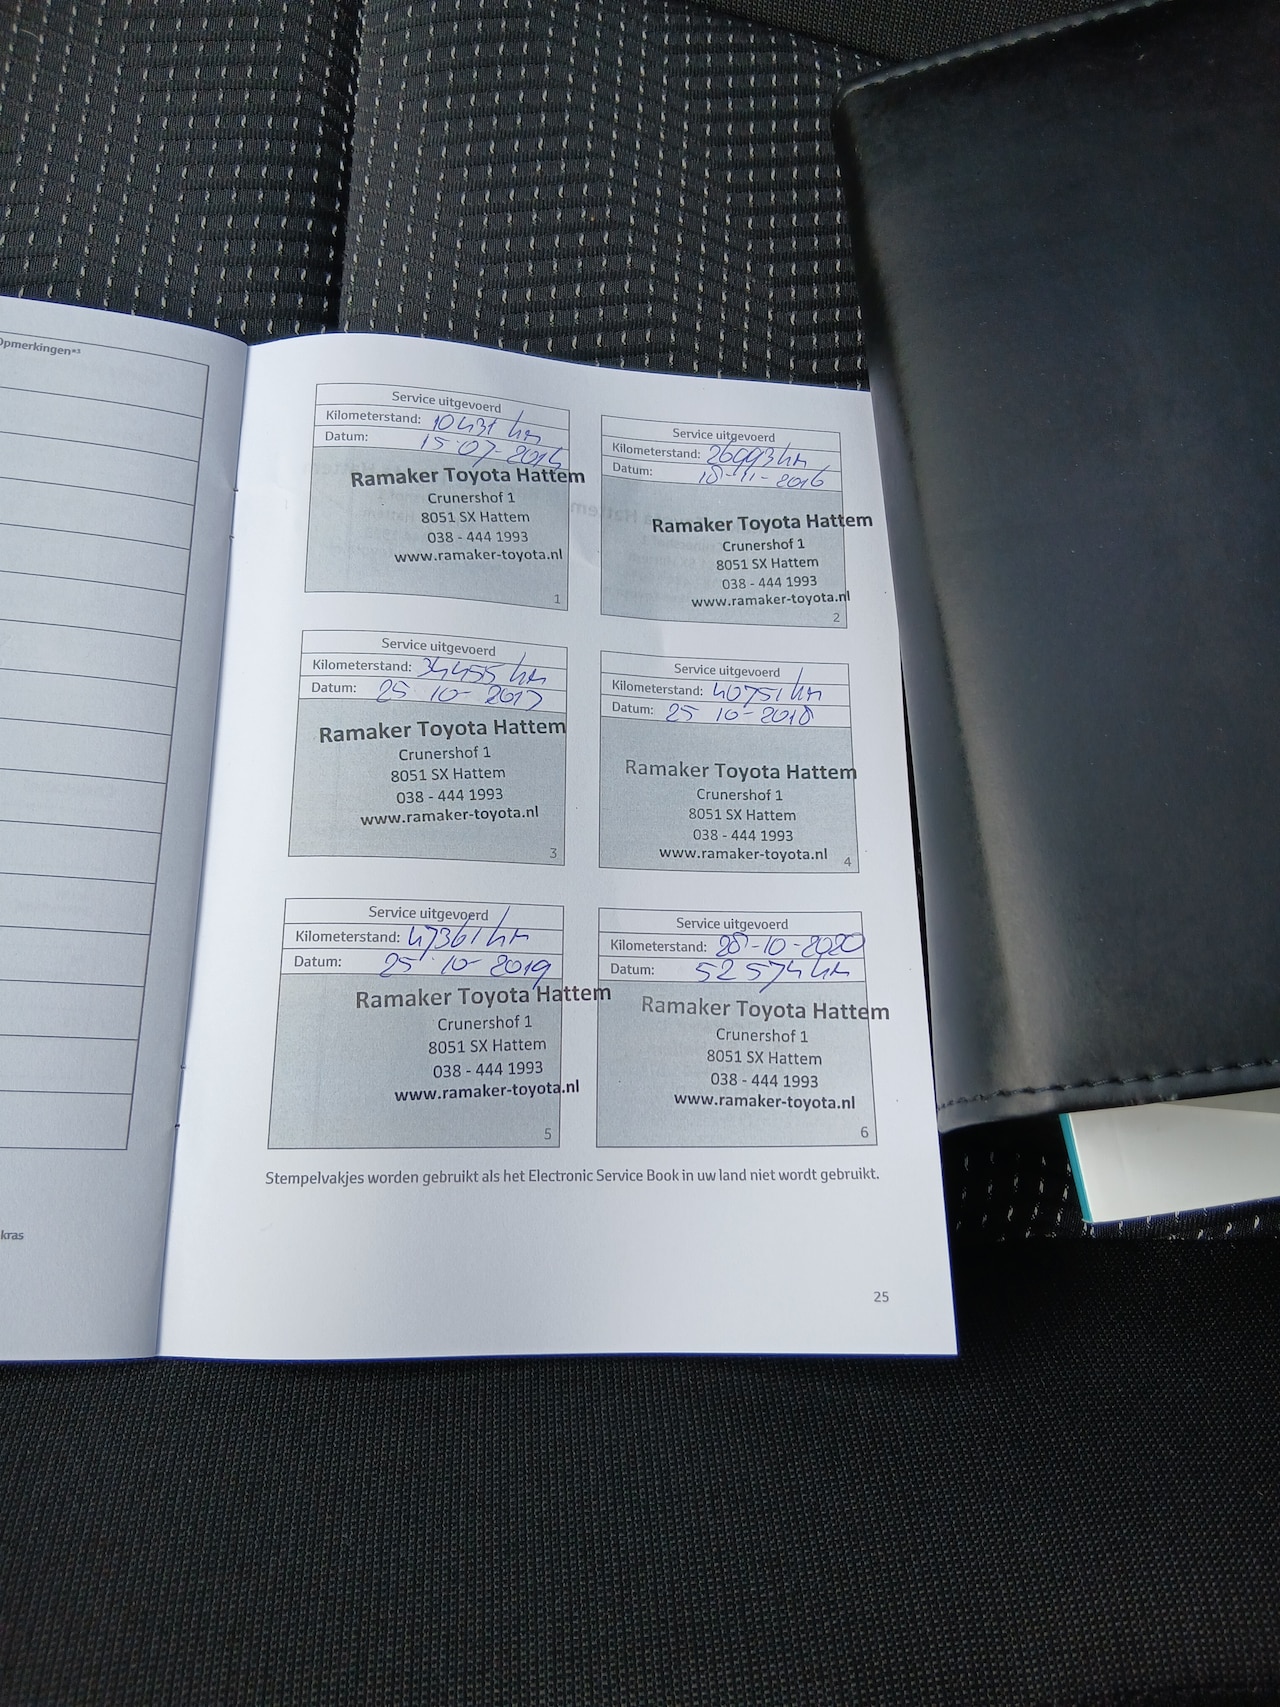 Opmerkingen*³
kras
Service uitgevoerd
Kilometerstand: 10431 km
Datum: 15-07-2015
Ramaker Toyota Hattem
Crunershof 1
8051 SX Hattem
038 - 444 1993
www.ramaker-toyota.nl
1
Service uitgevoerd
Kilometerstand: 26093 km
Datum: 18-11-2016
Ramaker Toyota Hattem
Crunershof 1
8051 SX Hattem
038 - 444 1993
www.ramaker-toyota.nl
2
Service uitgevoerd
Kilometerstand: 34455 km
Datum: 25 10-2017
Ramaker Toyota Hattem
Crunershof 1
8051 SX Hattem
038 - 444 1993
www.ramaker-toyota.nl
3
Service uitgevoerd
Kilometerstand: 40751 km
Datum: 25 10-2018
Ramaker Toyota Hattem
Crunershof 1
8051 SX Hattem
038 - 444 1993
www.ramaker-toyota.nl
4
Service uitgevoerd
Kilometerstand: 47361 km
Datum: 25 10-2019
Ramaker Toyota Hattem
Crunershof 1
8051 SX Hattem
038 - 444 1993
www.ramaker-toyota.nl
5
Service uitgevoerd
Kilometerstand: 28-10-2020
Datum: 52 574 km
Ramaker Toyota Hattem
Crunershof 1
8051 SX Hattem
038 - 444 1993
www.ramaker-toyota.nl
6
Stempelvakjes worden gebruikt als het Electronic Service Book in uw land niet wordt gebruikt.
25